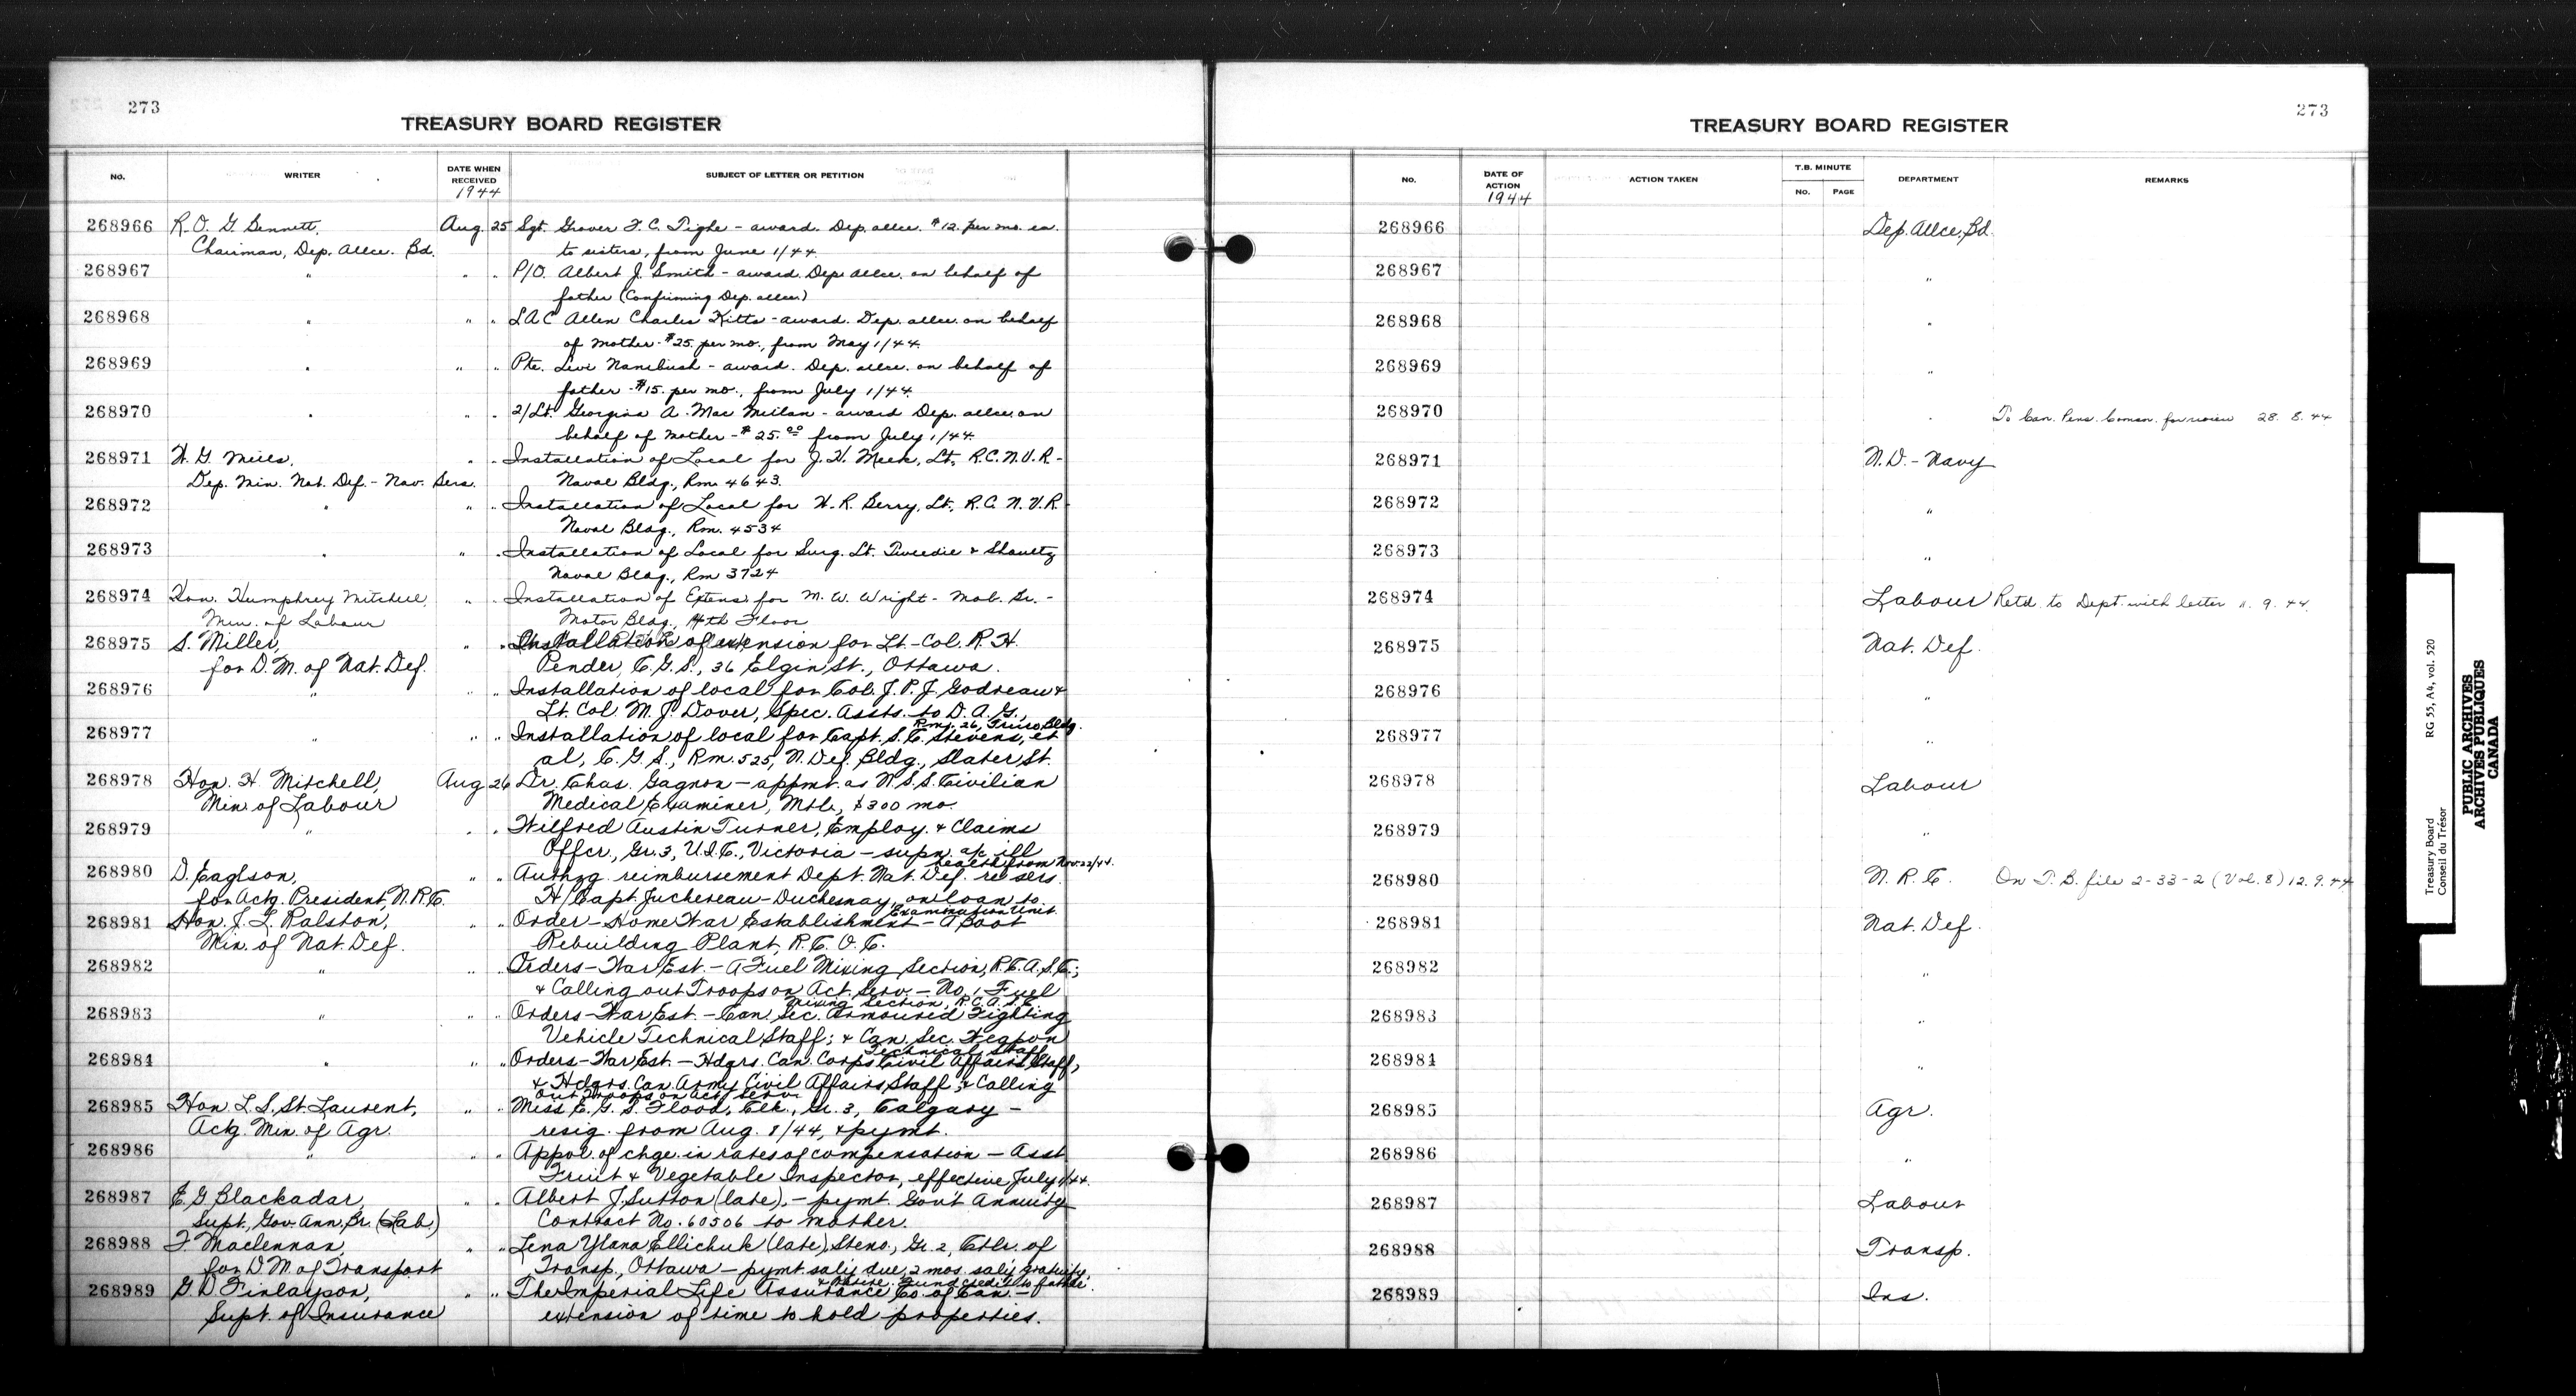 273
TREASURY BOARD REGISTER
No. WRITER DATE WHEN RECEIVED 1944 SUBJECT OF LETTER OR PETITION
268966 R. O. G. Bennett, Aug. 25 Sgt. Grover F. C. Tighe - award. Dep. allce. $12. per mo. ea.
Chairman, Dep. Allce. Bd. to sisters, from June 1/44.
268967 " " " P/O. Albert J. Smith - award. Dep. allce. on behalf of
father (Confirming Dep. allce.)
268968 " " " LAC Allen Charles Kitts - award. Dep. allce. on behalf
of mother - $25. per mo., from May 1/44.
268969 " " " Pte. Levi Nanibush - award. Dep. allce. on behalf of
father - $15. per mo., from July 1/44.
268970 " " " 2/Lt. Georgina A. MacMillan - award Dep. allce. on
behalf of mother - $25.00 from July 1/44.
268971 W. G. Mills, " " Installation of Local for J. H. Meek, Lt., R.C.N.V.R. -
Dep. Min. Nat. Def. - Nav. Serv. Naval Bldg., Rm. 4643.
268972 " " " Installation of Local for H. R. Berry, Lt., R.C.N.V.R.
Naval Bldg., Rm. 4534
268973 " " " Installation of Local for Surg. Lt. Tweedie & Shaultz
Naval Bldg., Rm 3724
268974 Hon. Humphrey Mitchell, " " Installation of Extens. for M. W. Wright - Mob. Br. -
Min. of Labour Motor Bldg., 4th Floor
268975 S. Miller, " " Installation of extension for Lt-Col. R. H.
for D.M. of Nat. Def. Pender, C.G.S., 36 Elgin St., Ottawa.
268976 " " " Installation of local for Col. J. P. J. Godreau &
Lt. Col. M. J. Dover, Spec. Assts. to D.A.G.,
Rm. 26, Bldg.
268977 " " " Installation of local for Capt. S. C. Stevens, et
al, C.G.S., Rm. 525, N. Def. Bldg., Slater St.
268978 Hon. H. Mitchell, Aug 26 Dr. Chas. Gagnon - appmt. as N.S.S. Civilian
Min. of Labour Medical Examiner, Mtl., $300 mo.
268979 " " " Wilfred Austin Turner, Employ. & Claims
Offcr., Gr. 3, U.I.C., Victoria - supn. a/c ill
health from Nov. 22/44.
268980 D. Eaglson, " " Authzg. reimbursement Dept. Nat. Def. re sers.
for Actg. President, N.R.C. H/Capt. Juchereau-Duchesnay, on loan to
Examination Unit.
268981 Hon. J. L. Ralston, " " Order - Home War Establishment - A Boot
Min. of Nat. Def. Rebuilding Plant, R.C.O.C.
268982 " " " Orders - War Est. - A Fuel Mixing Section, R.C.A.S.C.;
& Calling out Troops on Act. Serv. - No. 1 Fuel
Mixing Section, R.C.A.S.C.
268983 " " " Orders - War Est. - Can. Sec. Armoured Fighting
Vehicle Technical Staff; & Can. Sec. Weapon
Technical Staff
268984 " " " Orders - War Est. - Hdqrs. Can. Corps Civil Affairs Staff,
& Hdqrs. Can. Army Civil Affairs Staff; & Calling
out Troops on Act. Serv.
268985 Hon. L. S. St. Laurent, " " Miss E. G. S. Flood, Clk., Gr. 3, Calgary -
Actg. Min. of Agr. resig. from Aug. 8/44, & pymt.
268986 " " " Appvl. of chge. in rates of compensation - Asst
Fruit & Vegetable Inspector, effective July 1/44.
268987 E. G. Blackadar, " " Albert J. Sutton (late), - pymt. Gov't Annuity
Supt., Gov. Ann. Br. (Lab.) Contract No. 60506 to mother.
268988 F. Maclennan, " " Lena Ylana Ellichuk (late), Steno., Gr. 2, Ctlr. of
for D.M. of Transport Transp., Ottawa - pymt. saly due, 2 mos. saly gratuity,
& Retire. Fund credit to father.
268989 G. D. Finlayson, " " The Imperial Life Assurance Co. of Can. -
Supt. of Insurance extension of time to hold properties.
273
TREASURY BOARD REGISTER
No. DATE OF ACTION 1944 ACTION TAKEN T.B. MINUTE No. PAGE DEPARTMENT REMARKS
268966 Dep. Allce. Bd.
268967 "
268968 "
268969 "
268970 " To Can. Pens. Commn. for review 28. 8. 44
268971 N.D. - Navy
268972 "
268973 "
268974 Labour Retd. to Dept. with letter 11. 9. 44.
268975 Nat. Def.
268976 "
268977 "
268978 Labour
268979 "
268980 N.R.C. On T.B. file 2-33-2 (Vol. 8) 12. 9. 44
268981 Nat. Def.
268982 "
268983 "
268984 "
268985 Agr.
268986 "
268987 Labour
268988 Transp.
268989 Ins.
Treasury Board RG 55, A4, vol. 520
Conseil du Trésor
PUBLIC ARCHIVES
ARCHIVES PUBLIQUES
CANADA